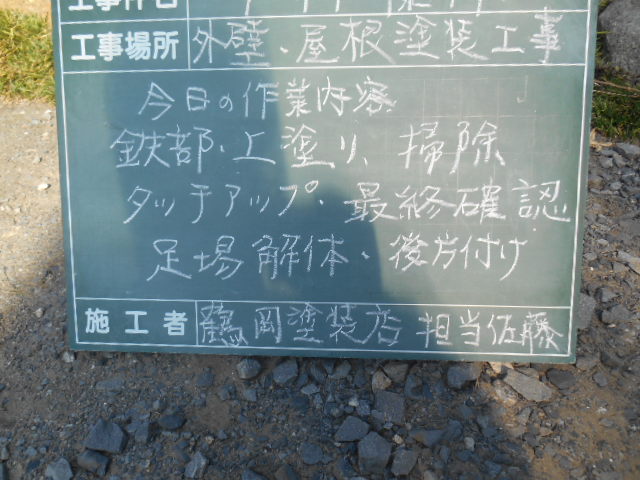 工事件名
工事場所 外壁・屋根塗装工事
今日の作業内容
鉄部・上塗り、掃除
タッチアップ・最終確認
足場解体・後方付け
施工者 鶴岡塗装店 担当佐藤